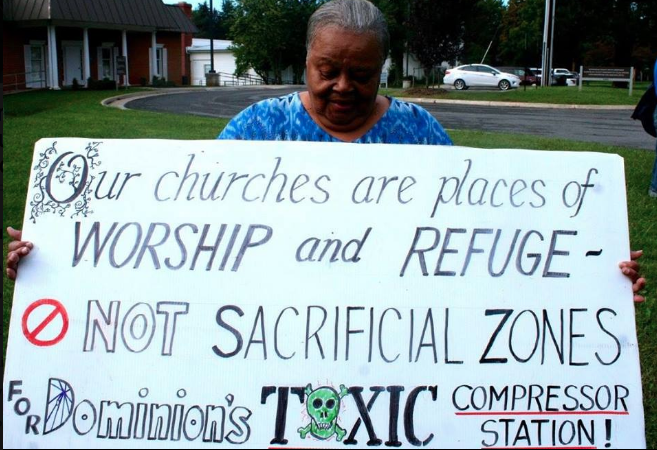 Our churches are places of
WORSHIP and REFUGE-
NOT SACRIFICIAL ZONES
FOR Dominion's TOXIC COMPRESSOR
STATION!